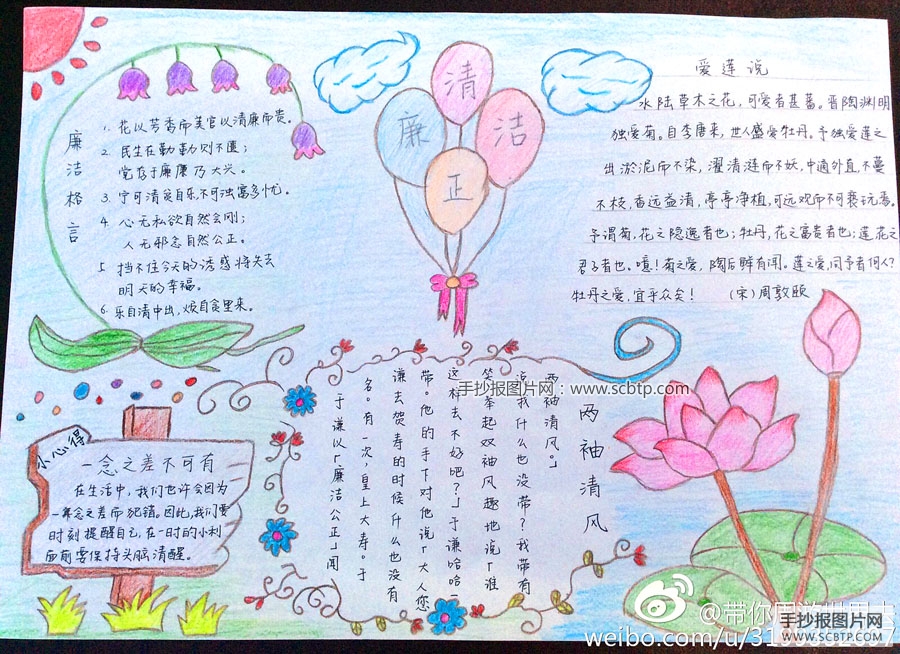 廉洁格言
1. 花以芳香而美官以清廉而贵。
2. 民生在勤勤则不匮；
党存于廉廉乃大兴。
3. 宁可清贫自乐不可浊富多忧。
4. 心无私欲自然会刚；
人无邪念自然公正。
5. 挡不住今天的诱惑将失去
明天的幸福。
6. 乐自清中出，烦自贪里来。
清
廉
洁
正
爱莲说
水陆草木之花，可爱者甚蕃。晋陶渊明
独爱菊。自李唐来，世人盛爱牡丹。予独爱莲之
出淤泥而不染，濯清涟而不妖，中通外直，不蔓
不枝，香远益清，亭亭净植，可远观而不可亵玩焉。
予谓菊，花之隐逸者也；牡丹，花之富贵者也；莲，花之
君子者也。噫！菊之爱，陶后鲜有闻。莲之爱，同予者何人？
牡丹之爱，宜乎众矣！ （宋）周敦颐
小心得
一念之差不可有
在生活中，我们也许会因为
一念之差而犯错。因此，我们要
时刻提醒自己，在一时的小利
面前要保持头脑清醒。
两袖清风
于谦以「廉洁公正」闻
名。有一次，皇上大寿。于
谦去贺寿的时候什么也没有
带。他的手下对他说「大人您
这样去不好吧？」于谦哈哈一
笑，举起双袖风趣地说「谁
说我什么也没带？我带有
两袖清风。」
手抄报图片网：www.scbtp.com
@带你周游世界
weibo.com/u/31
手抄报图片网
WWW.SCBTP.COM